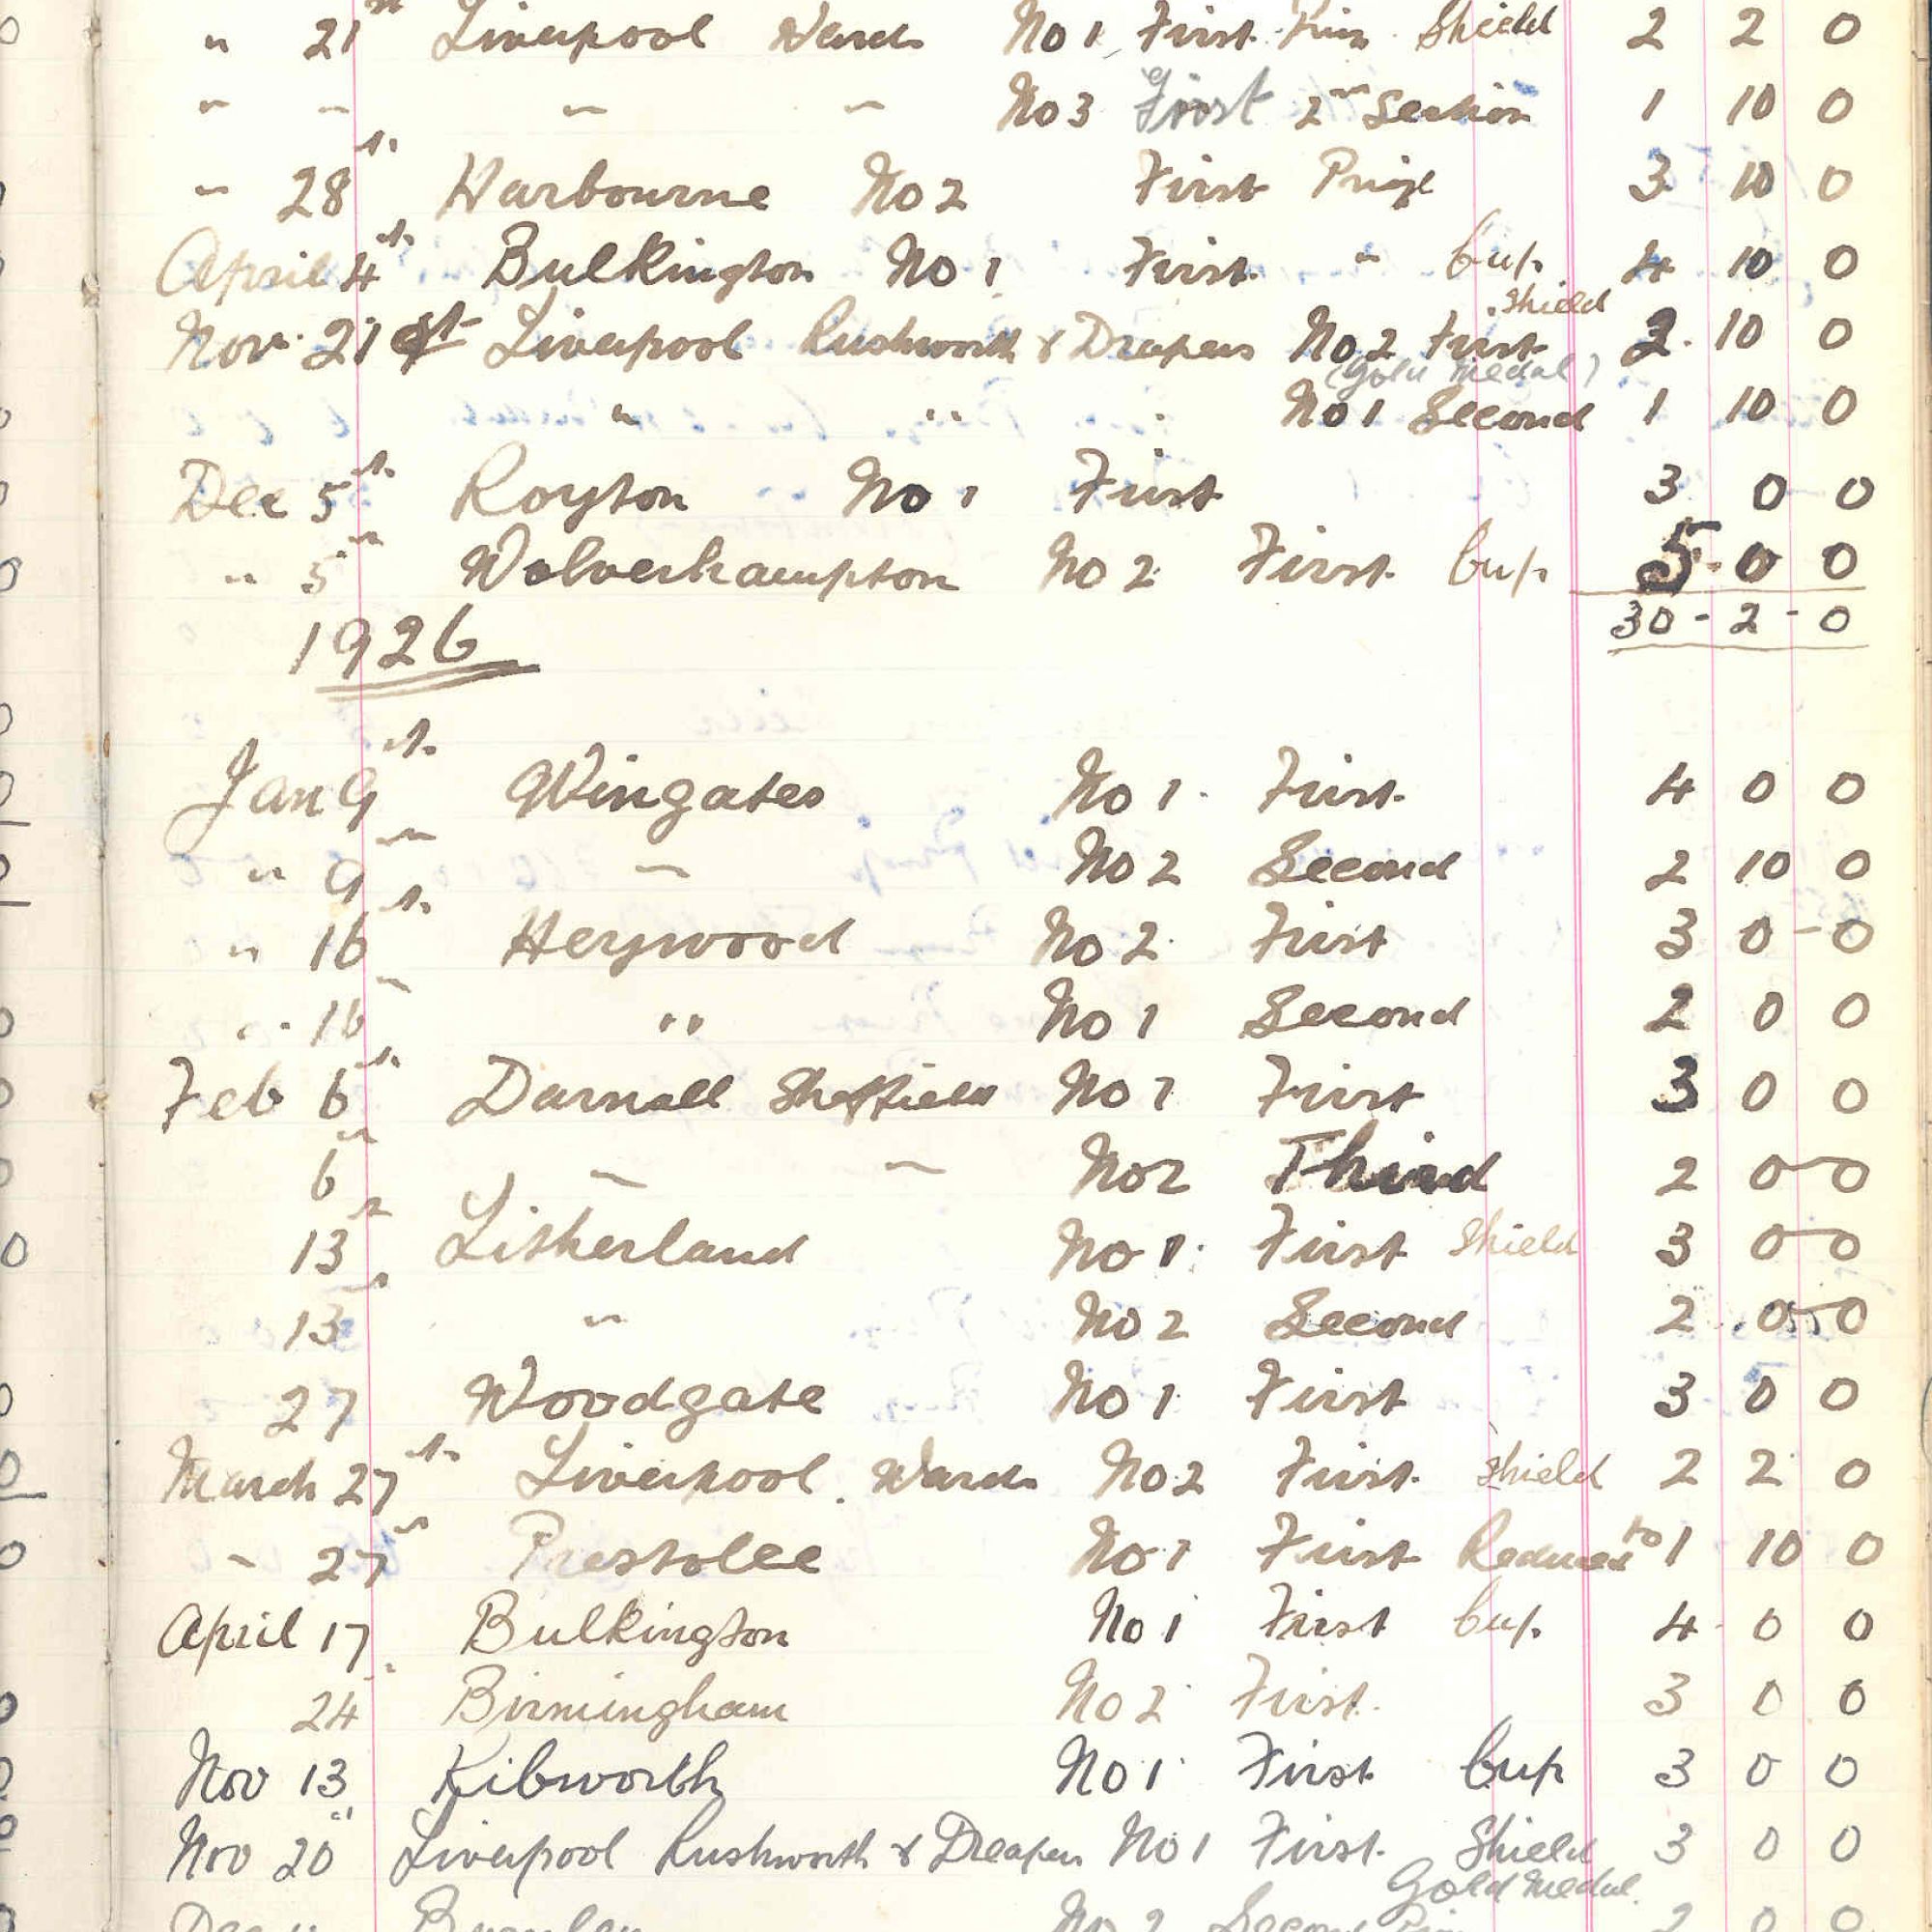 " 21st Liverpool Wards No 1 First Prize Shield 2 2 0
" " " " No 3 First 2nd Section 1 10 0
" 28th Harbourne No 2 First Prize 3 10 0
April 4th Bulkington No 1 First " Cup 4 10 0
Shield
Nov. 21st Liverpool Rushworth & Drapers No 2 First 2 10 0
(Gold Medal)
" " " No 1 Second 1 10 0
Dec 5th Royton No 1 First 3 0 0
" 5th Wolverhampton No 2 First Cup 5 - 0 0
30 - 2 - 0
1926
Jan 9th Wingates No 1 First 4 0 0
" 9th " No 2 Second 2 10 0
" 16th Heywood No 2 First 3 0 - 0
" 16 " No 1 Second 2 0 0
Feb 6th Darnall Sheffield No 1 First 3 0 0
6th " " No 2 Third 2 0 0
13th Litherland No 1 First Shield 3 0 0
13th " No 2 Second 2 0 0
27 Woodgate No 1 First 3 0 0
March 27th Liverpool. Wards No 2 First Shield 2 2 0
" 27th Prestolee No 1 First Reduced to 1 10 0
April 17 Bulkington No 1 First Cup 4 0 0
24th Birmingham No 2 First. 3 0 0
Nov 13 Kibworth No 1 First Cup 3 0 0
Nov 20 Liverpool Rushworth & Dreapers No 1 First Shield 3 0 0
Gold Medal.
Dec 11 Burnley No 2 Second Prize 2 0 0